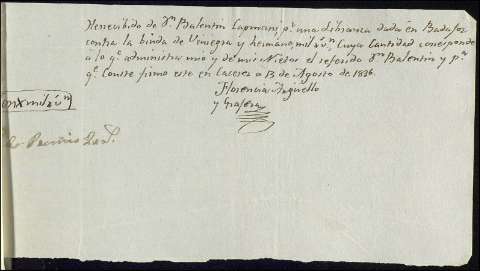 He recibido de Dn. Balentin Capmani pr. una Libranza dada en Badajoz
contra la biuda de Viniegra y hermano, mil rs vn. Cuya Cantidad corresponde
a lo qe. administra mio y de mis Nietos el referido Dn. Balentin y pa.
qe. Conste firmo este en Caceres a 13 de Agosto de 1836.
Florencia Arguello
y Grafera
mil rs vn